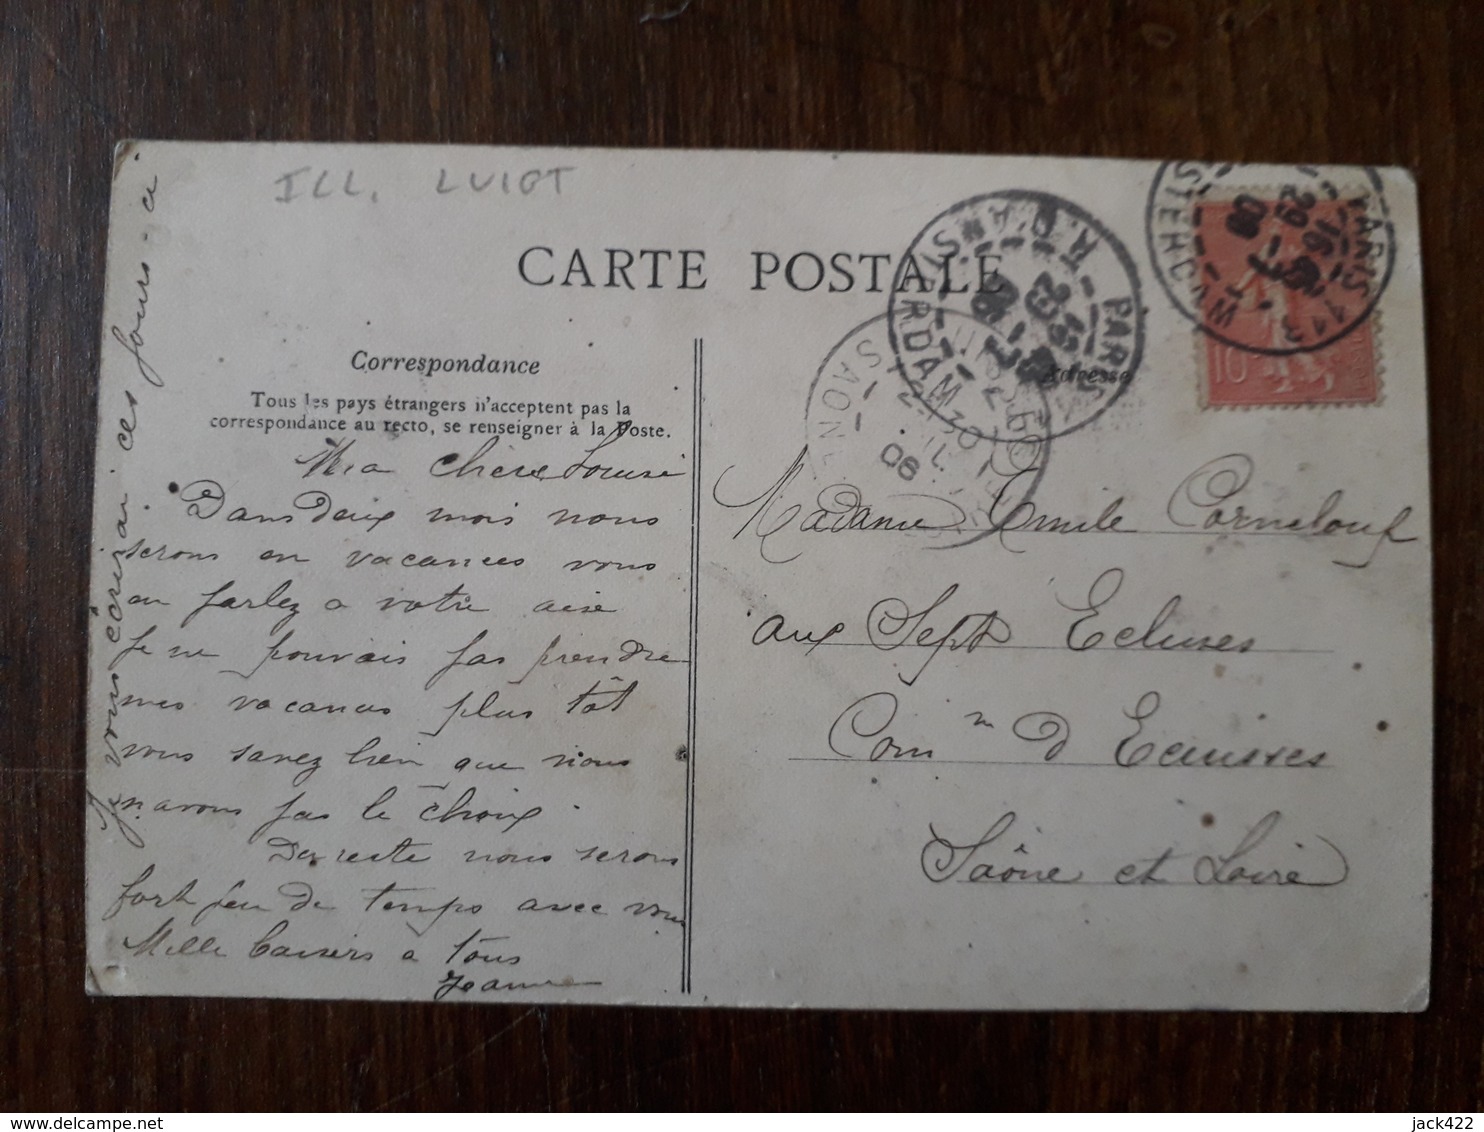 ILL. LUIGT
CARTE POSTALE
Correspondance
Tous les pays étrangers n'acceptent pas la
correspondance au recto, se renseigner à la Poste.
Adresse
Ma chère Louise
Dans deux mois nous
serons en vacances vous
en parlez a votre aise
Je ne pouvais pas prendre
mes vacances plus tôt
vous savez bien que nous
n'avons pas le choix.
Du reste nous serons
fort peu de temps avec vous
Mille baisers a tous
Jeanne
Je vous écrirai ces jours-ci
Madame Emile Corneloup
aux Sept Ecluses
Com ne d Ecuisses
Saône et Loire
PARIS
R. D'AMSTERDAM
PARIS 113
16
29 -7
06
WAGRAM
SAONE
12 30
06
10
delcampe.net
jack422